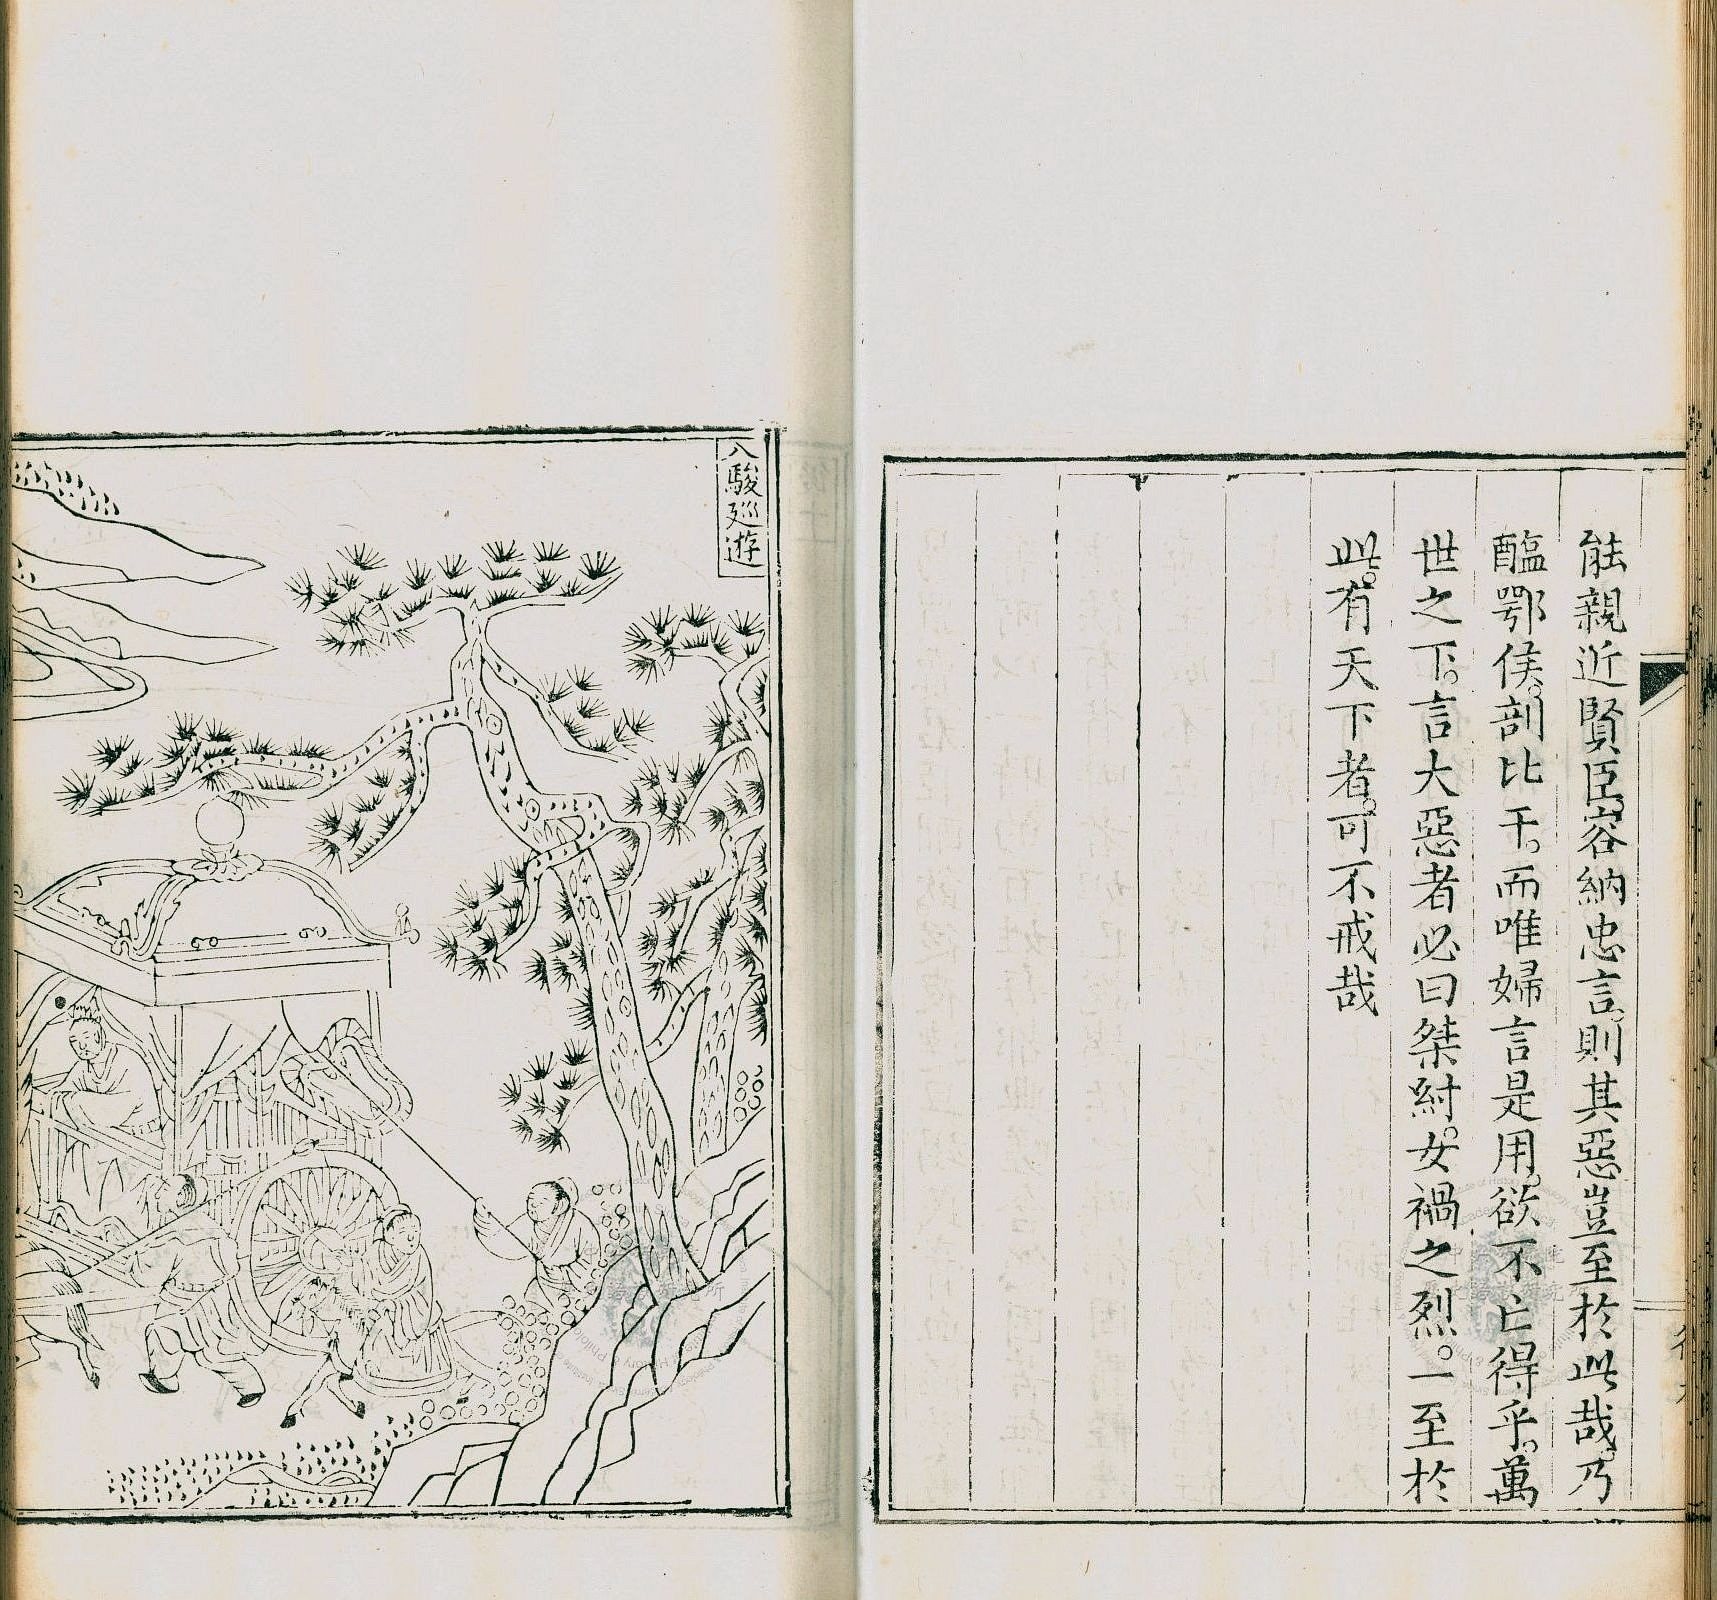 能親近賢臣。容納忠言。則其惡豈至於此哉。乃
醢鄂侯。剖比干。而唯婦言是用。欲不亡得乎。萬
世之下。言大惡者必曰桀紂。女禍之烈。一至於
此。有天下者。可不戒哉
八駿巡遊